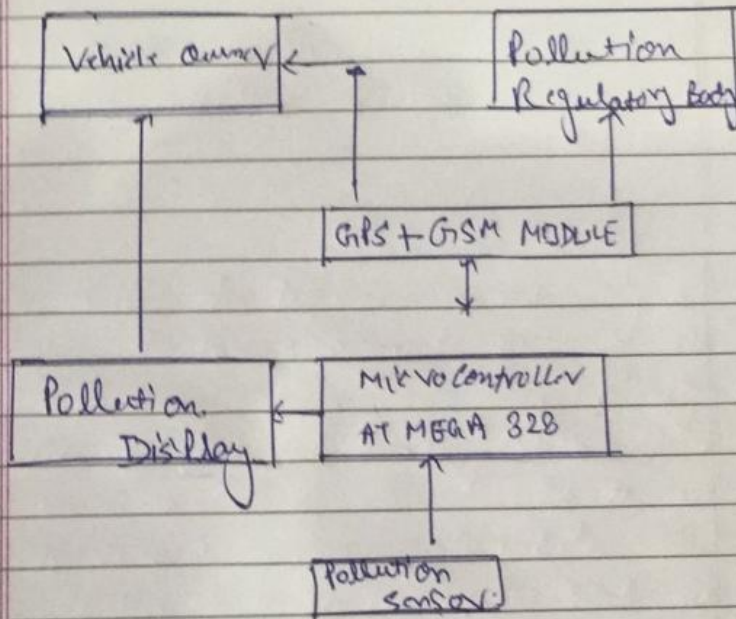 Vehicle Owner
Pollution
Regulatory Body
GPS + GSM MODULE
Pollution
Display
Mikrocontroller
AT MEGA 328
Pollution
Sensor